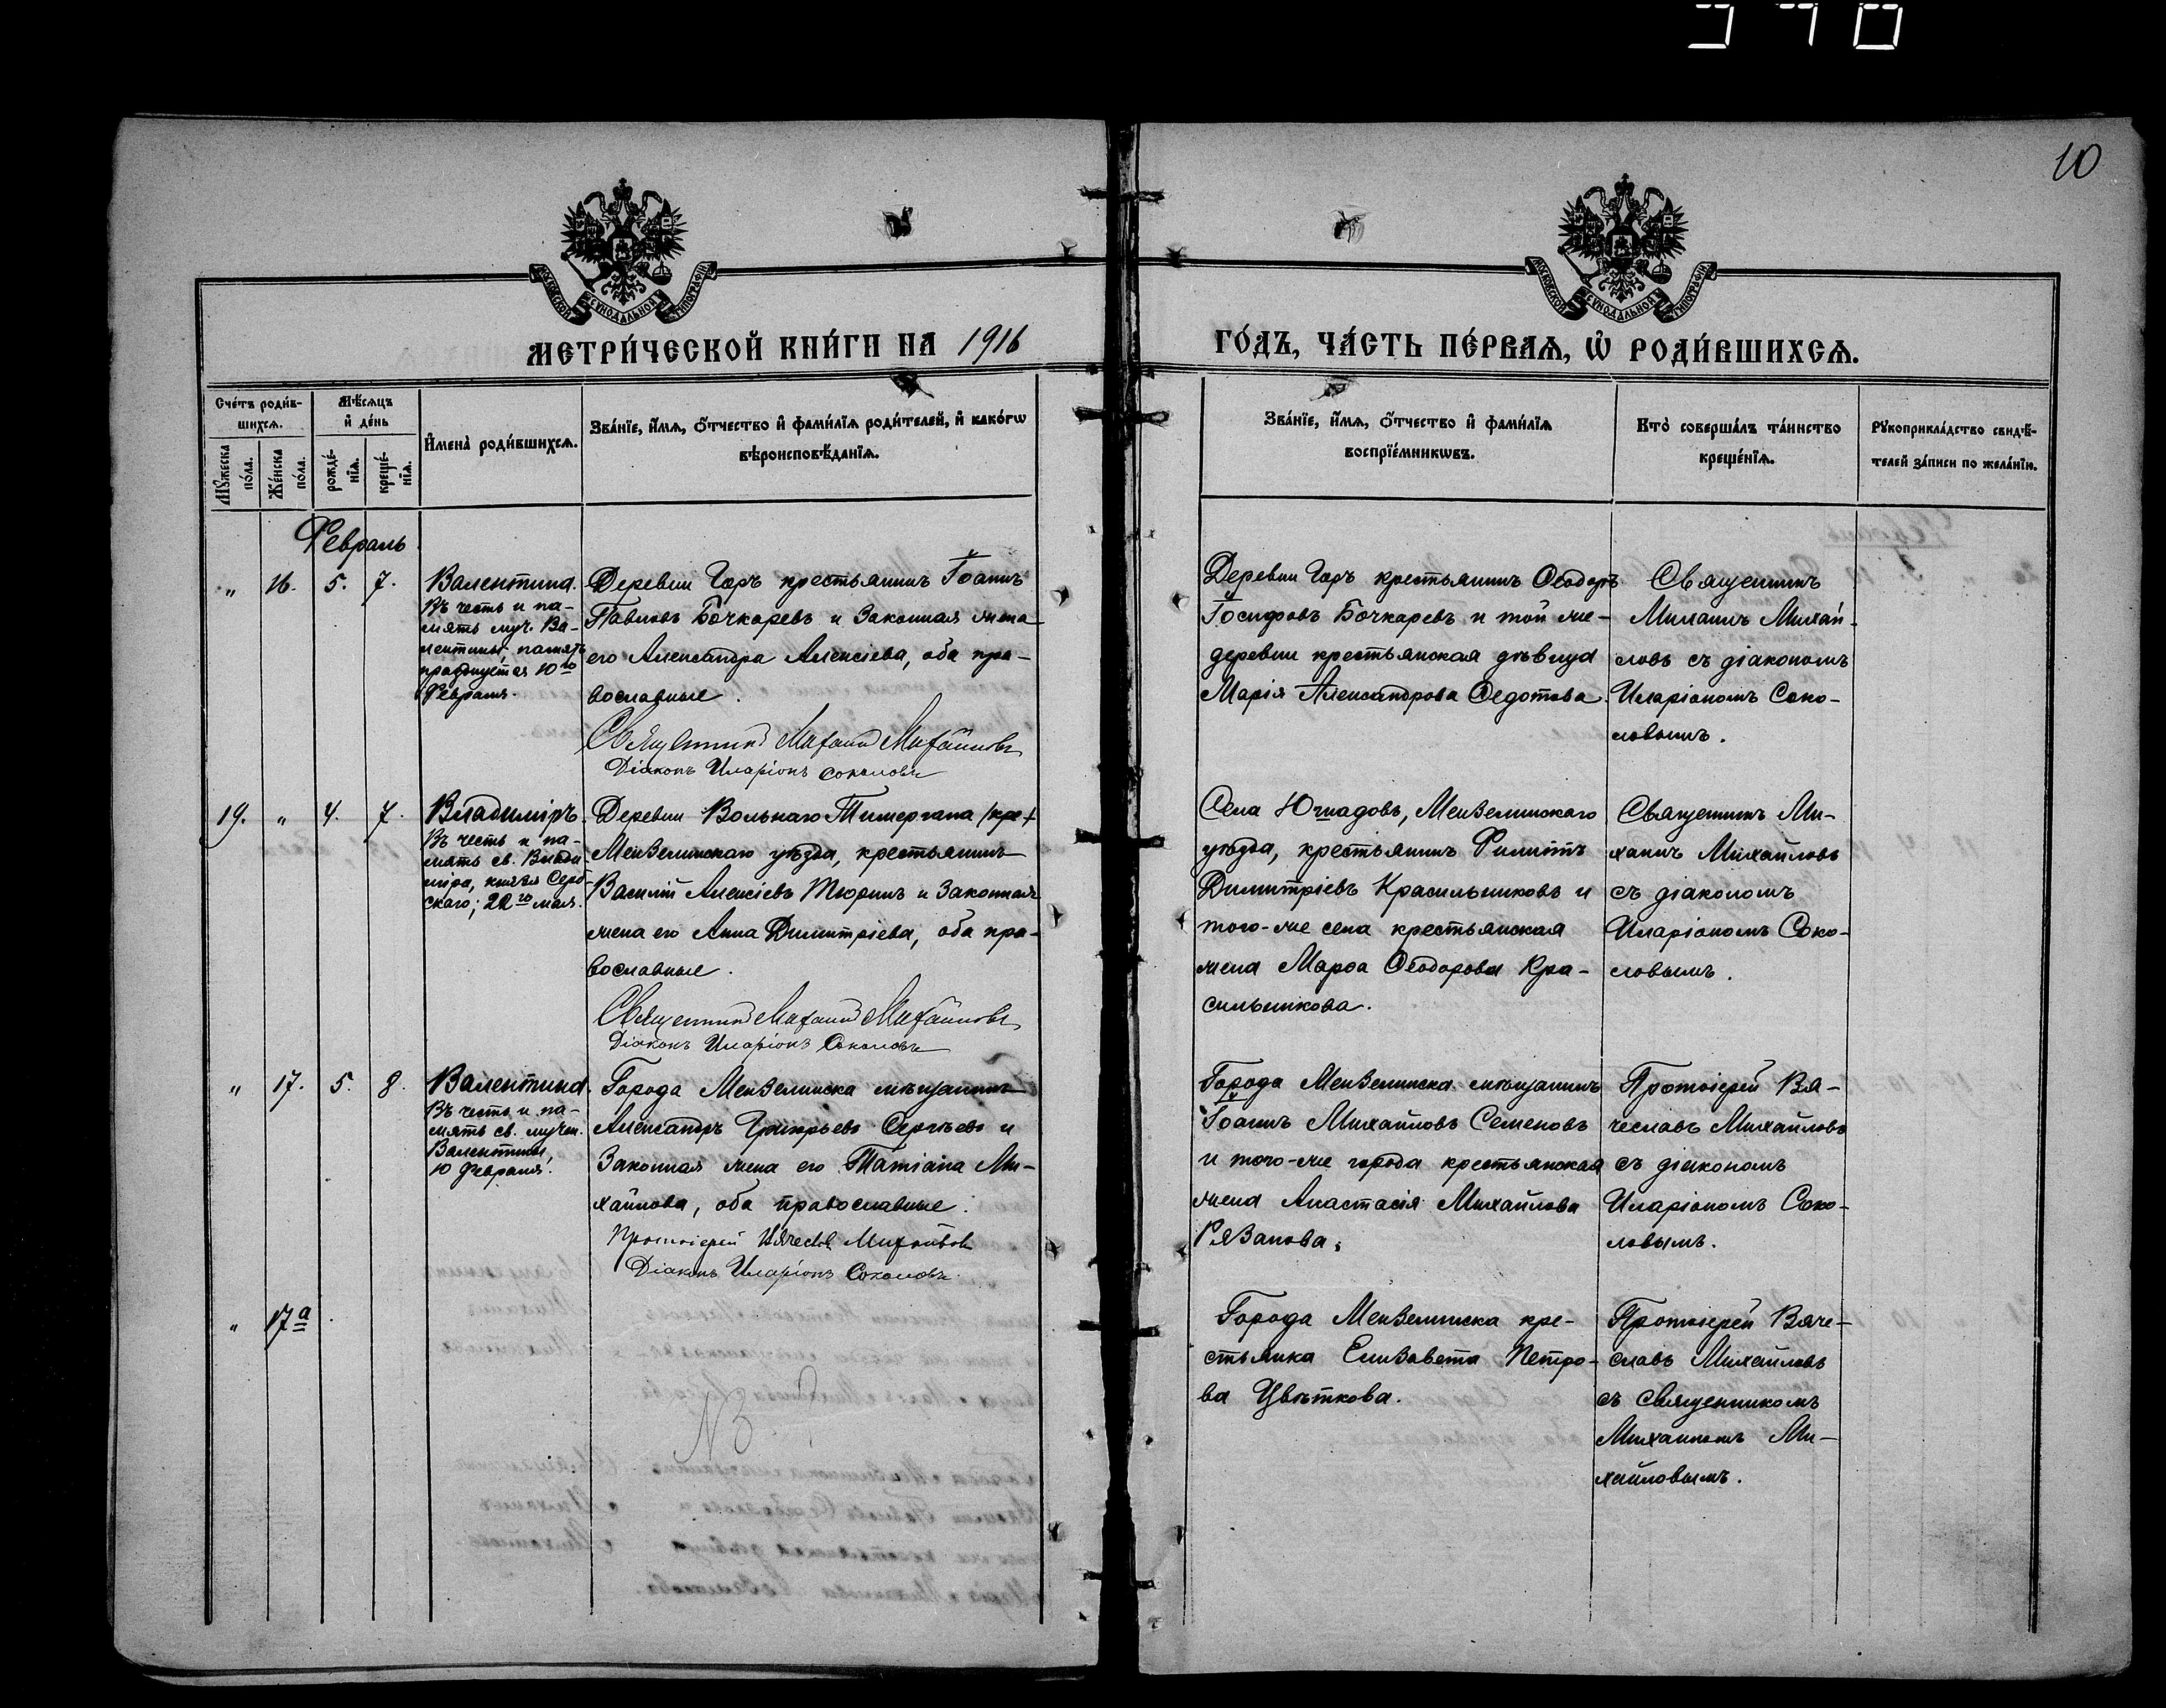 10
МОСКОВСКОЙ СѴНОДАЛЬНОЙ ТИПОГРАФІИ
МОСКОВСКОЙ СѴНОДАЛЬНОЙ ТИПОГРАФІИ
МЕТРИ́ЧЕСКОЙ КНИ́ГИ НА 1916
ГО́ДЪ, ЧА́СТЬ ПЕ́РВАѦ, Ѡ҆ РОДИ́ВШИХСѦ.
Сче́тъ роди́в-
шихсѧ.
Мꙋжеска по́ла.
Же́нска по́ла.
Мѣ́сѧцъ и҆ де́нь
рожде́-нїѧ.
креще́-нїѧ.
И҆мена̀ роди́вшихсѧ.
Зва́нїе, и҆́мѧ, ѻ҆́тчество и҆ фами́лїѧ роди́телей, и҆ како́гѡ
вѣроисповѣ́данїѧ.
Зва́нїе, и҆́мѧ, ѻ҆́тчество и҆ фами́лїѧ
воспрїе́мникѡвъ.
Кто̀ соверша́лъ та́инство
креще́нїѧ.
Рꙋкоприкла́дство свидѣ́-
телей за́писи по жела́нїю.
Февраль
„ 16. 5. 7.
Валентина.
Въ честь и па-
мять муч. Ва-
лентины, память
празднуется 10го
Февраля.
Деревни Горъ крестьянинъ Іоаннъ
Павловъ Бочкаревъ и законная жена
его Александра Алексіева, оба пра-
вославные.
Священникъ Михаилъ Михайловъ
Діаконъ Иларіонъ Соколовъ
Деревни Горъ крестьянинъ Ѳеодоръ
Іосифовъ Бочкаревъ и той же-
деревни крестьянская дѣвица
Марія Александрова Ѳедотова.
Священникъ
Михаилъ Михай-
ловъ съ діакономъ
Иларіономъ Соко-
ловымъ.
19. „ 4. 7.
Владиміръ.
Въ честь и па-
мять св. Влади
міра, князя Серб-
скаго; 22го мая.
Деревни Вольнаго Тимергана
Мензелинскаго уѣзда, крестьянинъ
Василій Алексіевъ Тюринъ и законная
жена его Анна Димитріева, оба пра-
вославные.
Священникъ Михаилъ Михайловъ
Діаконъ Иларіонъ Соколовъ
Села Юшадовъ, Мензелинскаго
уѣзда, крестьянинъ Филиппъ
Димитріевъ Красильниковъ и
того-же села крестьянская
жена Марѳа Ѳеодорова Кра-
сильникова.
Священникъ Ми-
хаилъ Михайловъ
съ діакономъ
Иларіономъ Соко-
ловымъ.
„ 17. 5. 8.
Валентина.
Въ честь и па-
мять св. мучен.
Валентины,
10 февраля.
Города Мензелинска мѣщанинъ
Александръ Григорьевъ Сергѣевъ и
законная жена его Татіана Ми-
хайлова, оба православные.
Протоіерей Вячеславъ Михайловъ
Діаконъ Иларіонъ Соколовъ.
Города Мензелинска мѣщанинъ
Іоаннъ Михайловъ Семеновъ
и того-же города крестьянская
жена Анастасія Михайлова
Рязанова.
Протоіерей Вя-
чеславъ Михайловъ
съ діакономъ
Иларіономъ Соко-
ловымъ.
„ 17а
NB
Города Мензелинска кре-
стьянка Елизавета Петро-
ва Цвѣткова.
Протоіерей Вяче-
славъ Михайловъ
съ священникомъ
Михаиломъ Ми-
хайловымъ.